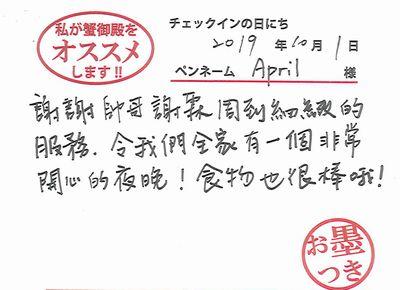 私が蟹御殿を
オススメ
します!!
チェックインの日にち
2019年10月1日
ペンネーム April 様
謝謝帥哥謝霖周到細緻的
服務.令我們全家有一個非常
開心的夜晚!食物也很棒哦!
お墨
つき